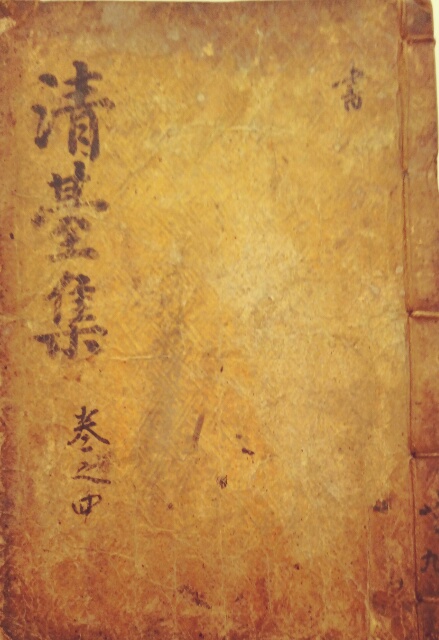 書
清臺集
卷之四
九